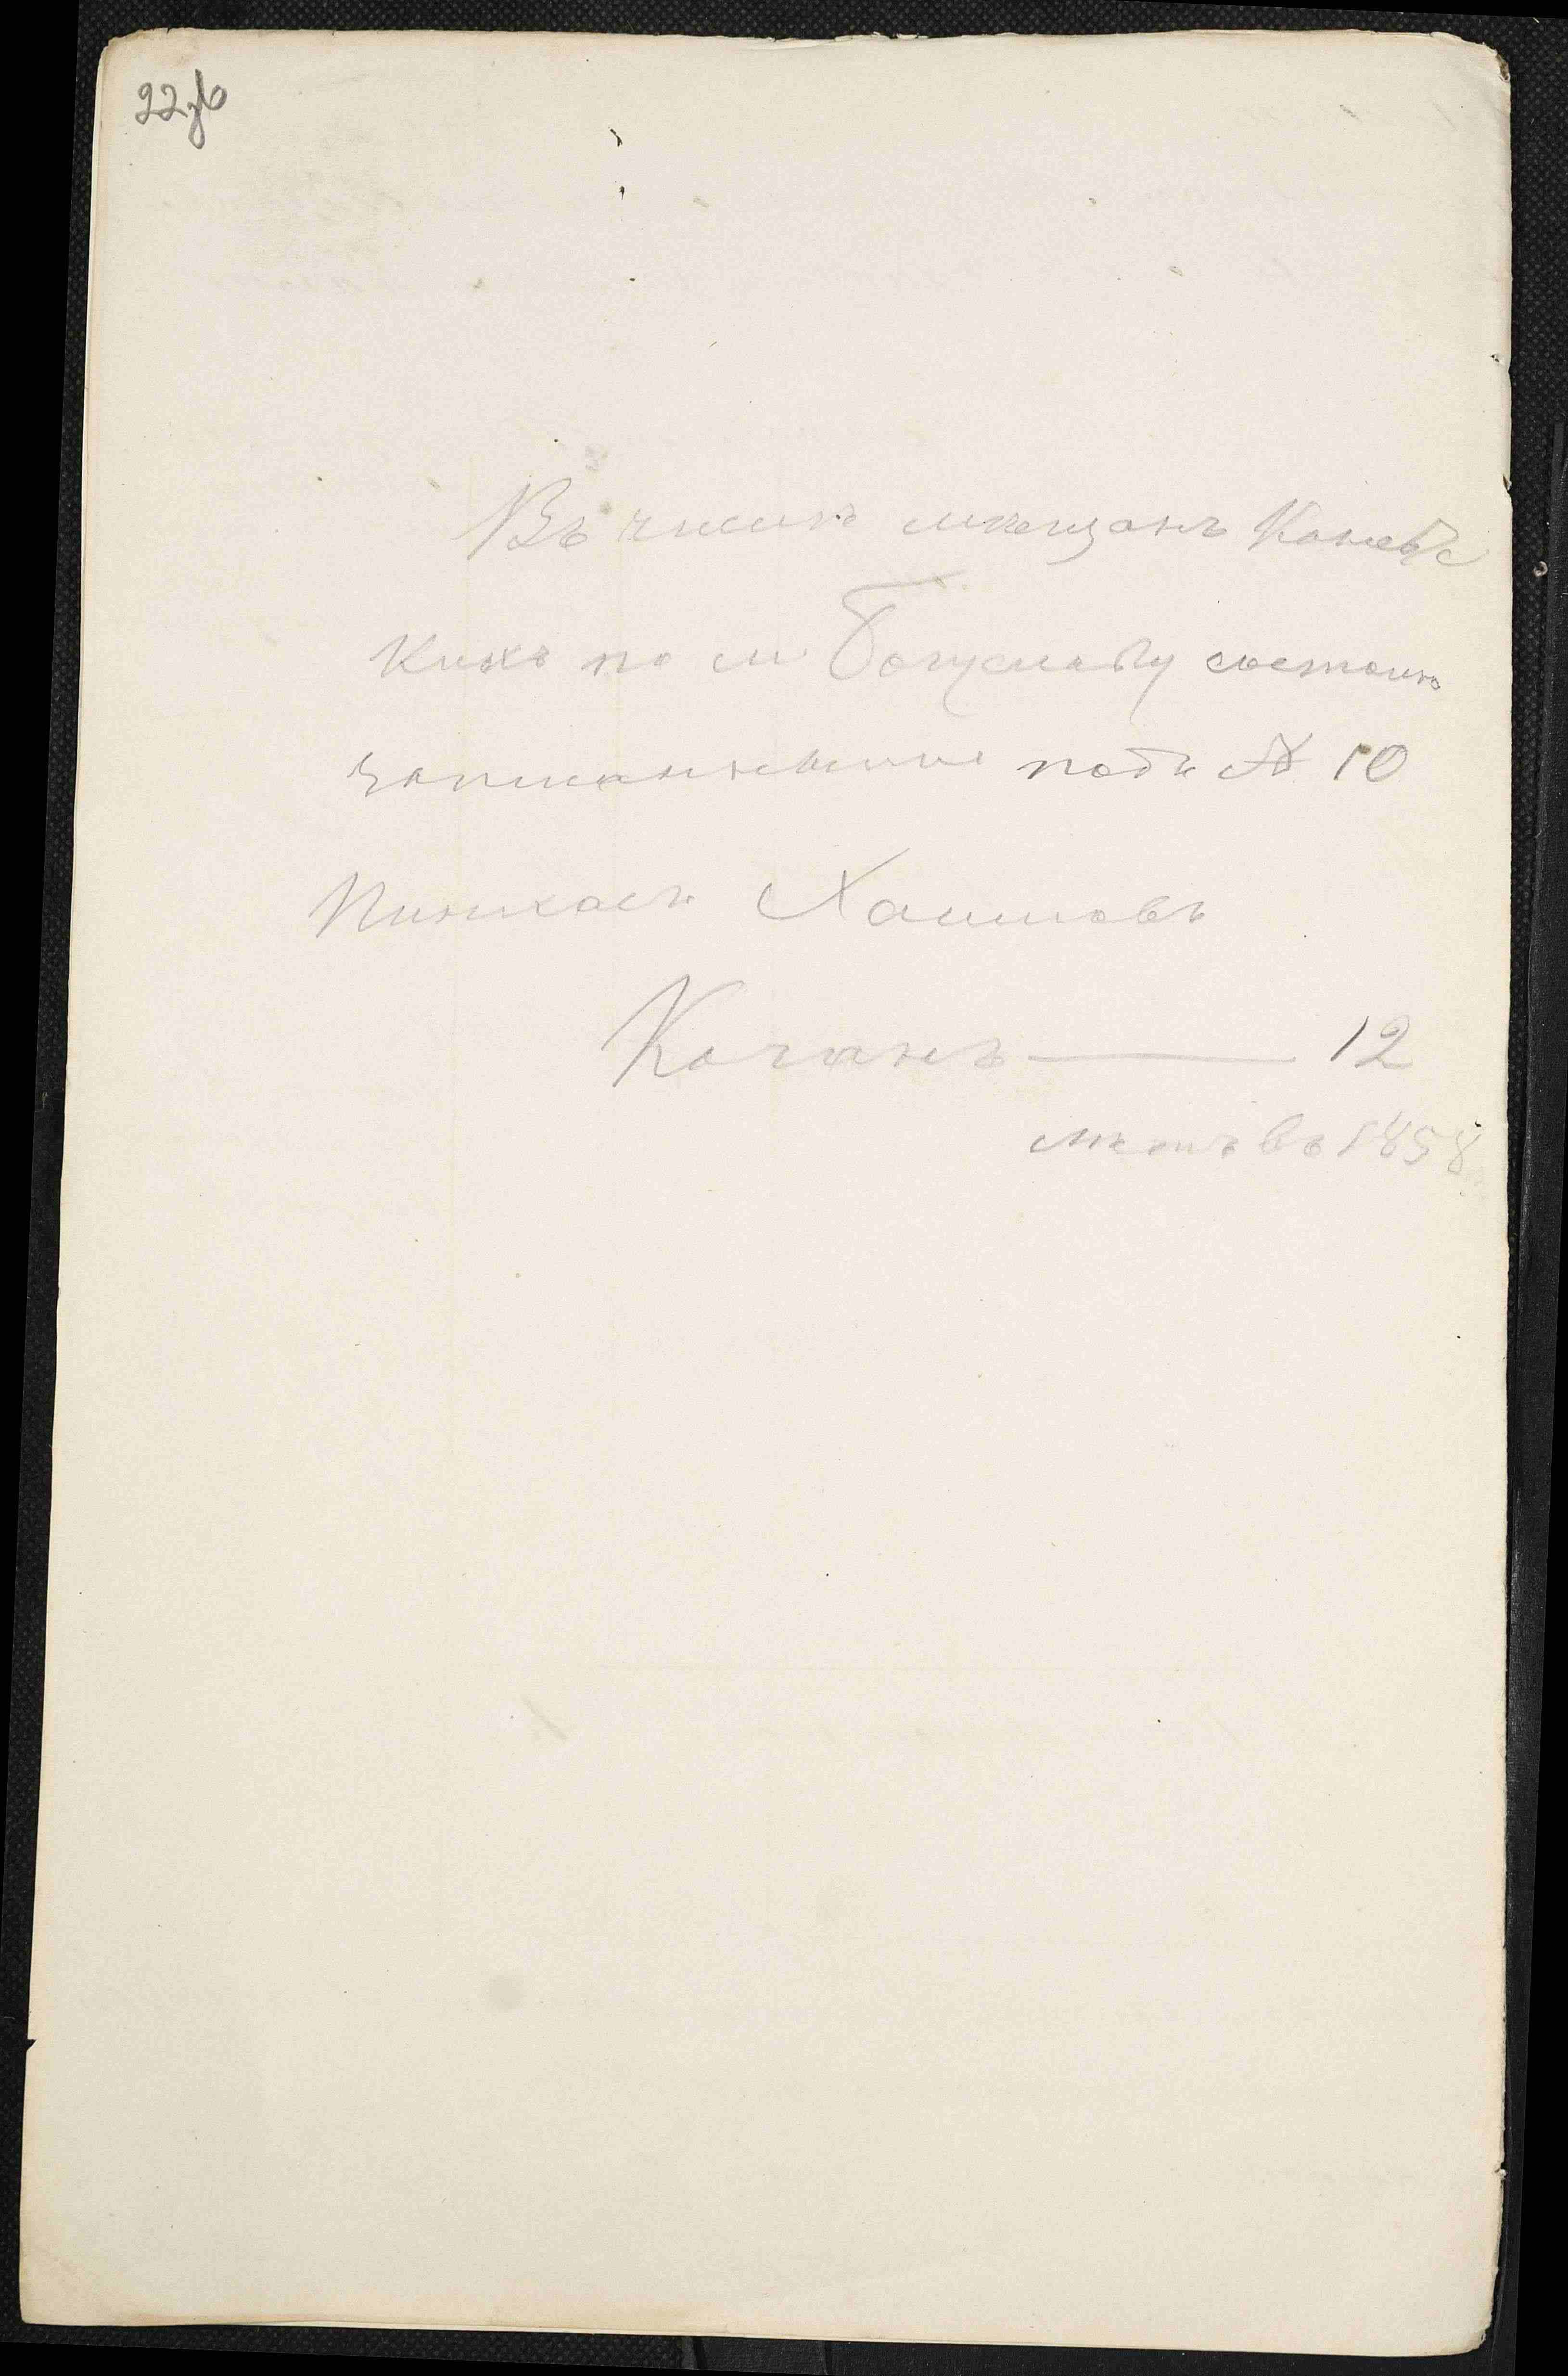 22зв
Въ числѣ мѣщанъ Каневс
кихъ по м Богуславу состоитъ
записанными подъ № 10
Пинхасъ Хаимовъ
Коганъ — 12
лѣтъ въ 1858